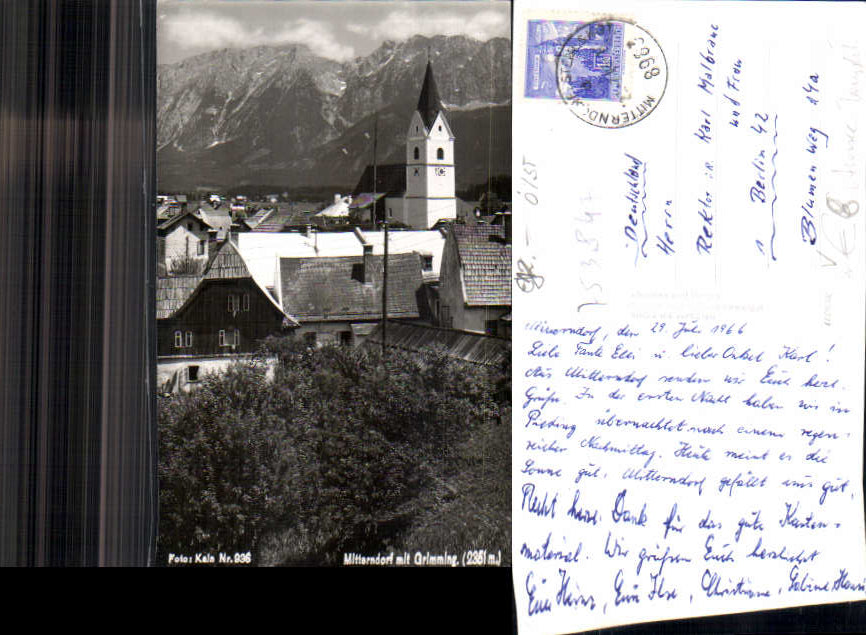 Foto: Kain Nr. 936
Mitterndorf mit Grimming. (2351 m.)
8968
MITTERND
Deutschland
Herrn
Rektor i.R. Karl Malbranc
und Frau
1 Berlin 42
Blumenweg 14a
753847
Mitterndorf, den 29. Juli 1966
Liebe Tante Elli u. lieber Onkel Karl!
Aus Mitterndorf senden wir Euch herzl.
Grüße. In der ersten Nacht haben wir in
übernachtet nach einem regen-
reichen Nachmittag. Heute meint es die
Sonne gut. Mitterndorf gefällt uns gut.
Recht herzl. Dank für das gute Karten-
material. Wir grüßen Euch herzlichst
Euer Heinz, Eure Ilse, Christiane, Sabine, Hansi